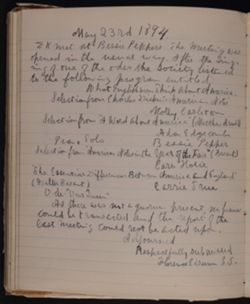 May 23rd 1894
Z K met at Bessie Peppers. The Meeting was
opened in the usual way. After the sing-
ing of one of the odes the Society listened
to the following program entitled,
What Englishmen Think About America.
Selection from Charles Dickens' American Notes
Molly Carleton
Selection from A Word About America (Matthew Arnold)
Ada Edgecomb
Piano Solo Bessie Pepper
Selection from America Notes in the
The Difference Between America and England
(Walter Besant) Carrie True
As there was not a quorum present, no business
could be transacted and the report of the
last meeting could not be acted upon.
Adjourned
Respectfully submitted